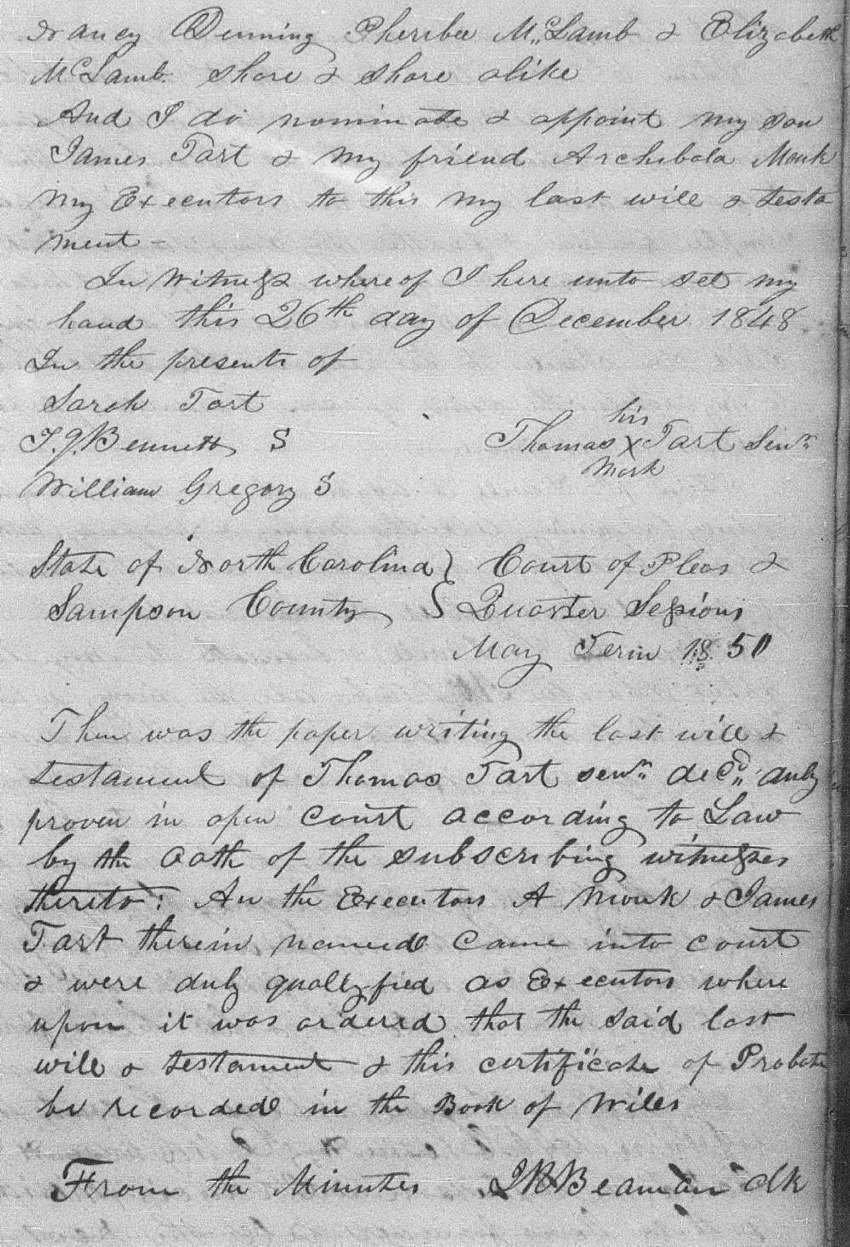 Nancy Denning Pheribee M,,Lamb & Elizabeth
McLamb share & share alike
And I do nominate & appoint my son
James Tart & my friend Archibald Monk
my Executors to this my last will & testa
ment
In Witness whereof I here unto set my
hand this 26th day of December 1848
In the presents of
Sarah Tart
T. J. Bennett S
William Gregory S
his
Thomas X Tart Senr
mark
State of North Carolina } Court of Pleas &
Sampson County } Quarter Sessions
May Term 1850
Then was the paper writing the last will &
testament of Thomas Tart senr decd duly
proven in open court according to Law
by the oath of the subscribing witnesses
thereto: An the Executors A Monk & James
Tart therein named came into court
& were duly qualifyied as Executors where
upon it was ordered that the said last
will & testament & this certificate of Probate
be recorded in the Book of Wills
From the Minutes J R Beaman Clk